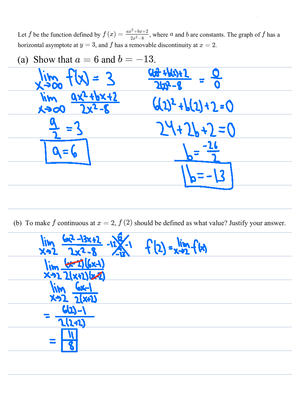 Let f be the function defined by f(x) = (ax²+bx+2)/(2x²-8), where a and b are constants. The graph of f has a
horizontal asymptote at y = 3, and f has a removable discontinuity at x = 2.
(a) Show that a = 6 and b = −13.
lim x→∞ f(x) = 3
lim x→∞ (ax²+bx+2)/(2x²-8)
a/2 = 3
a=6
(a(2)²+b(2)+2)/(2(2)²-8) = 0/0
6(2)²+b(2)+2=0
24+2b+2=0
b=-26/2
b=-13
(b) To make f continuous at x = 2, f(2) should be defined as what value? Justify your answer.
lim x→2 (6x²-13x+2)/(2x²-8)
-12 -1 -13
f(2)=lim x→2 f(x)
lim x→2 (x-2)(6x-1)/2(x+2)(x-2)
lim x→2 (6x-1)/2(x+2)
= (6(2)-1)/2(2+2)
= 11/8